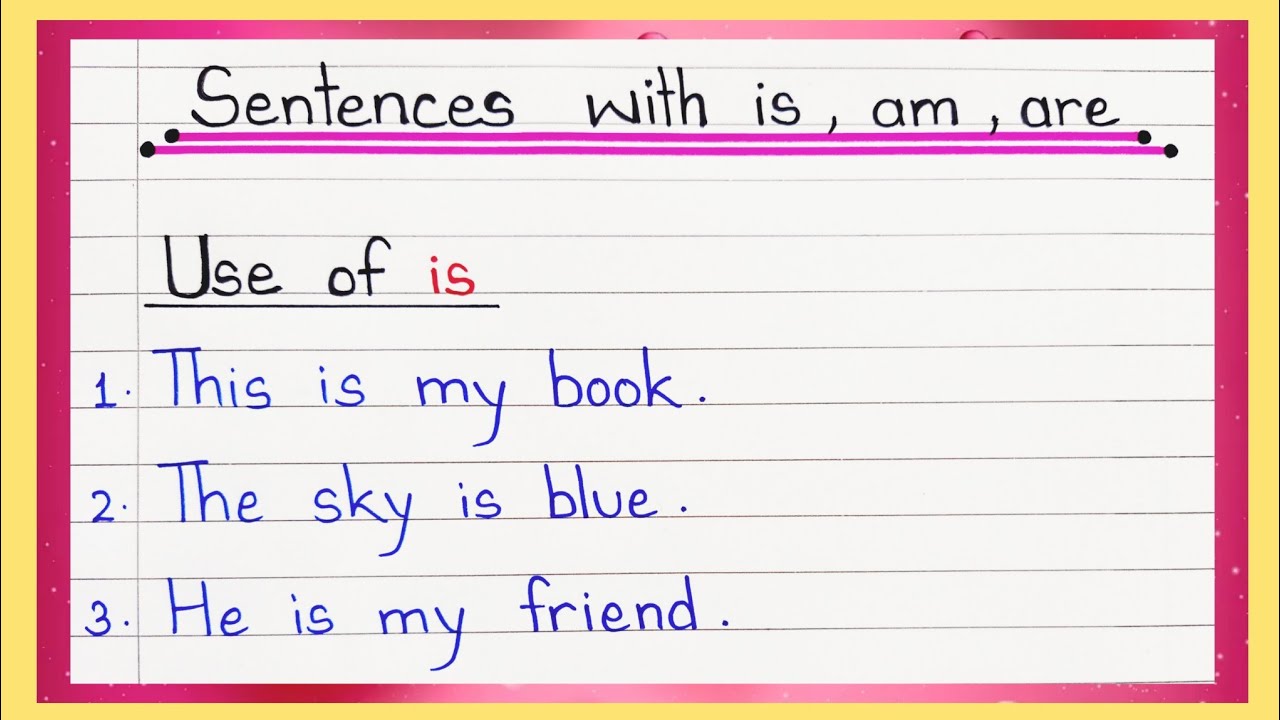 Sentences with is, am, are
Use of is
1. This is my book.
2. The sky is blue.
3. He is my friend.